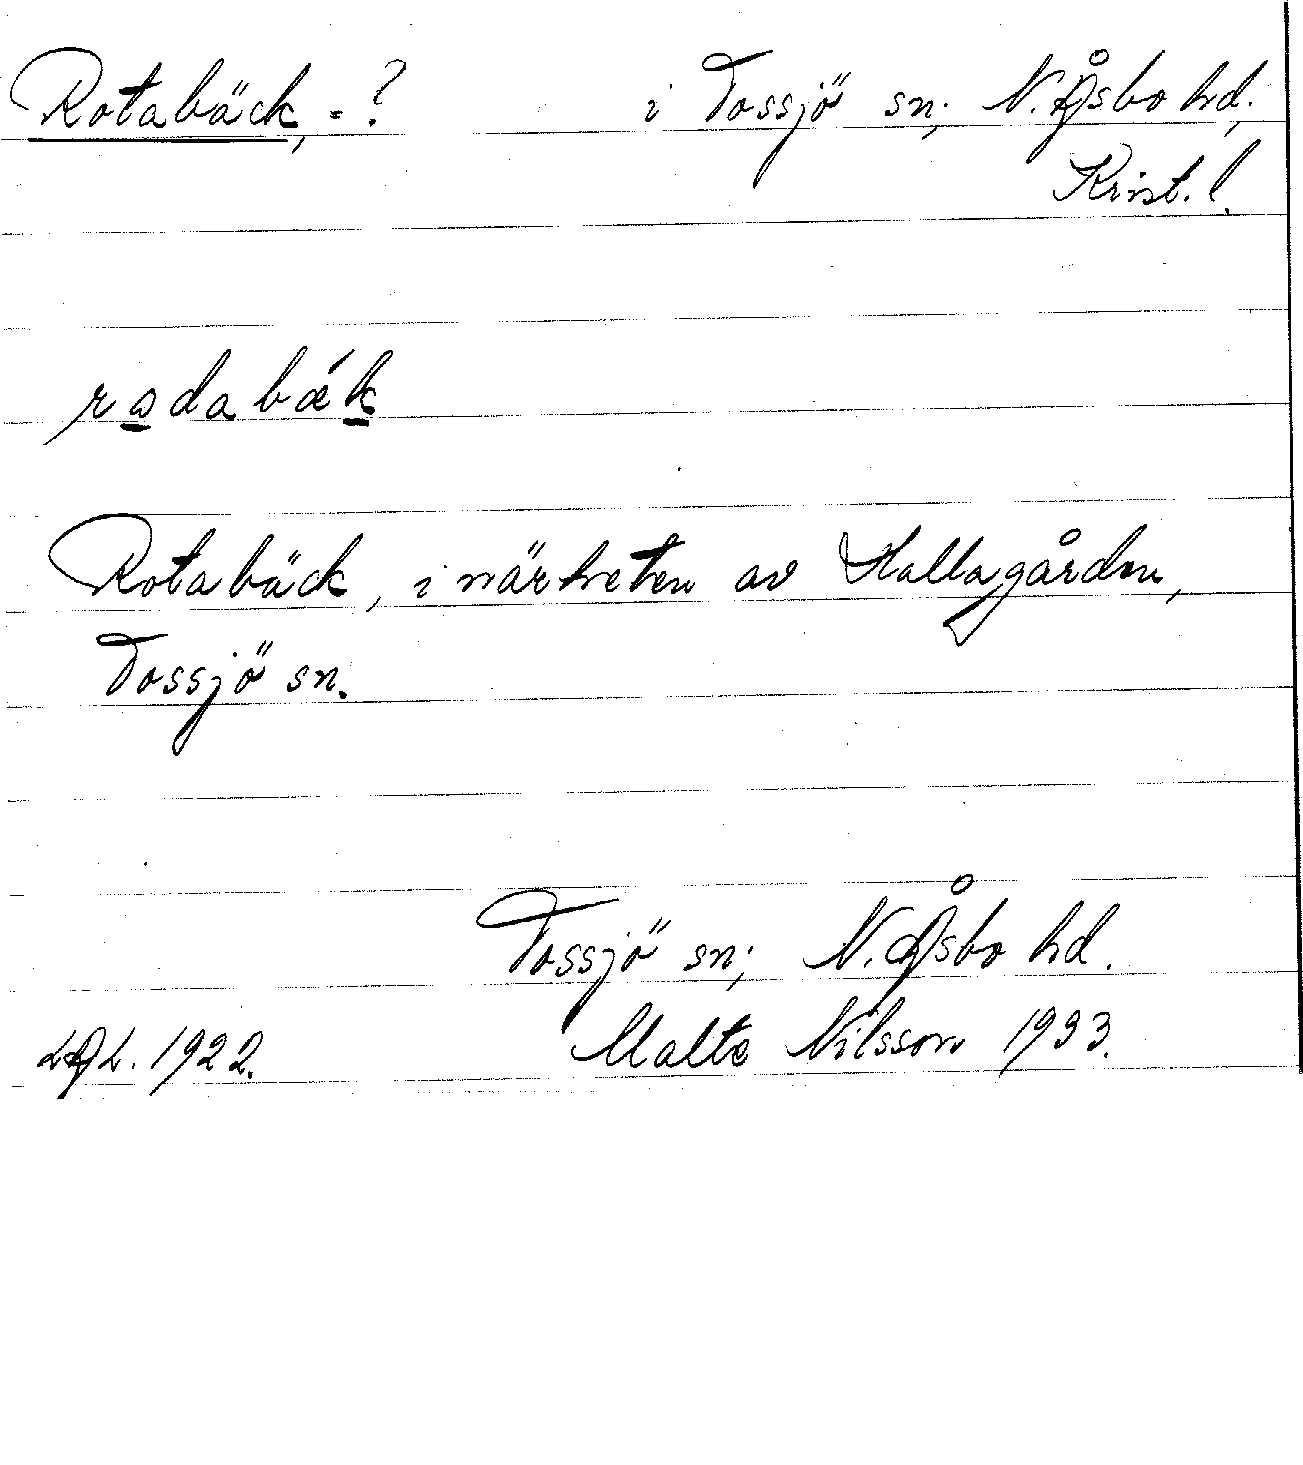 Rotabäck, =? i Tossjö sn; N. Åsbo hd,
Krist. l.
radabǽk
Rotabäck, i närheten av Hallagården,
Tossjö sn.
Tossjö sn; N. Åsbo hd.
1922. Malte Nilsson 1933.